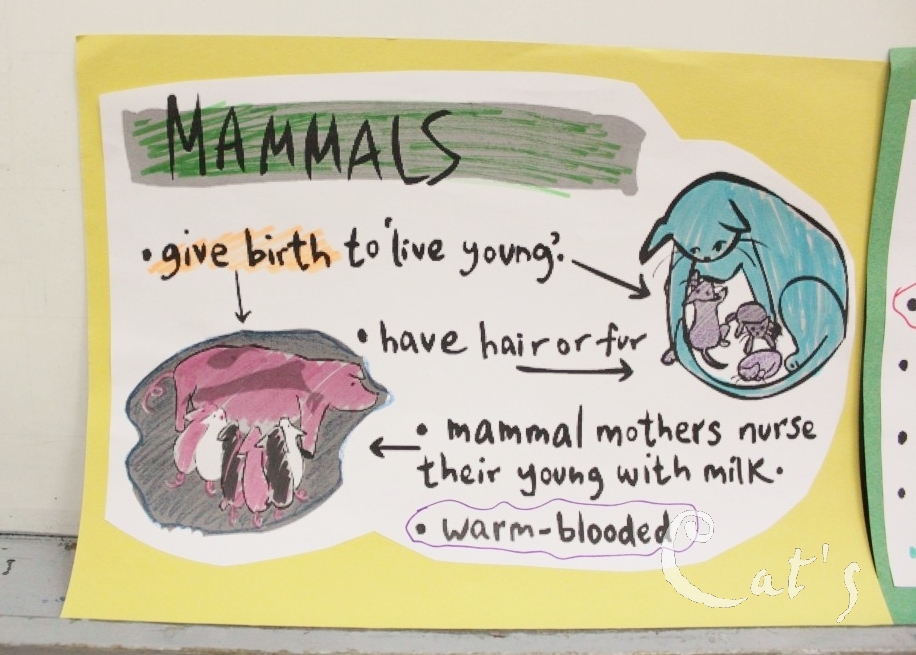 MAMMALS
• give birth to 'live young'.
• have hair or fur
• mammal mothers nurse
their young with milk.
• warm-blooded
Cat's